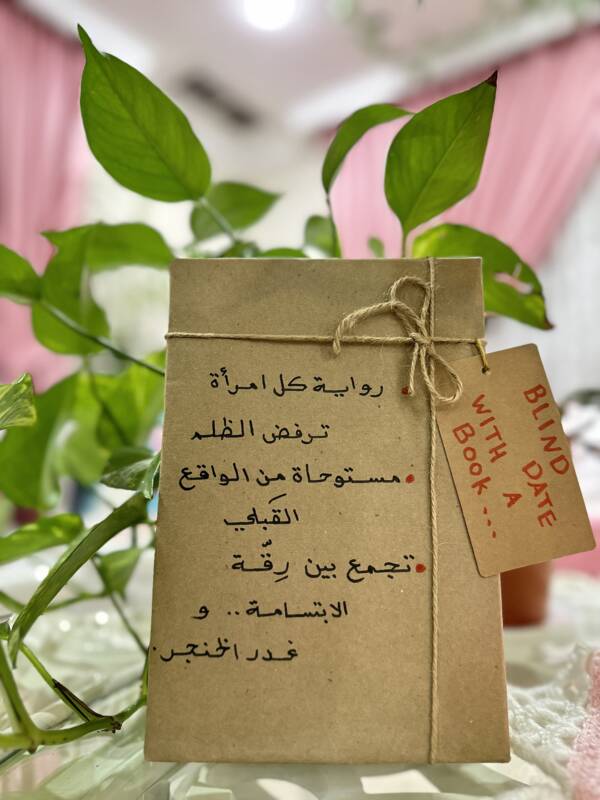 • رواية كل امرأة
ترفض الظلم
• مستوحاة من الواقع
القَبلي
• تجمع بين رِقّة
الابتسامة .. و
غدر الخنجر.
BLIND DATE
WITH A
Book...